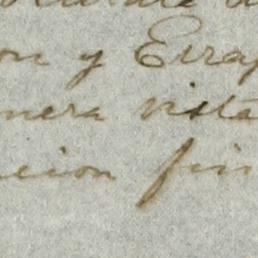 on y Errap
nera vista
cion fin